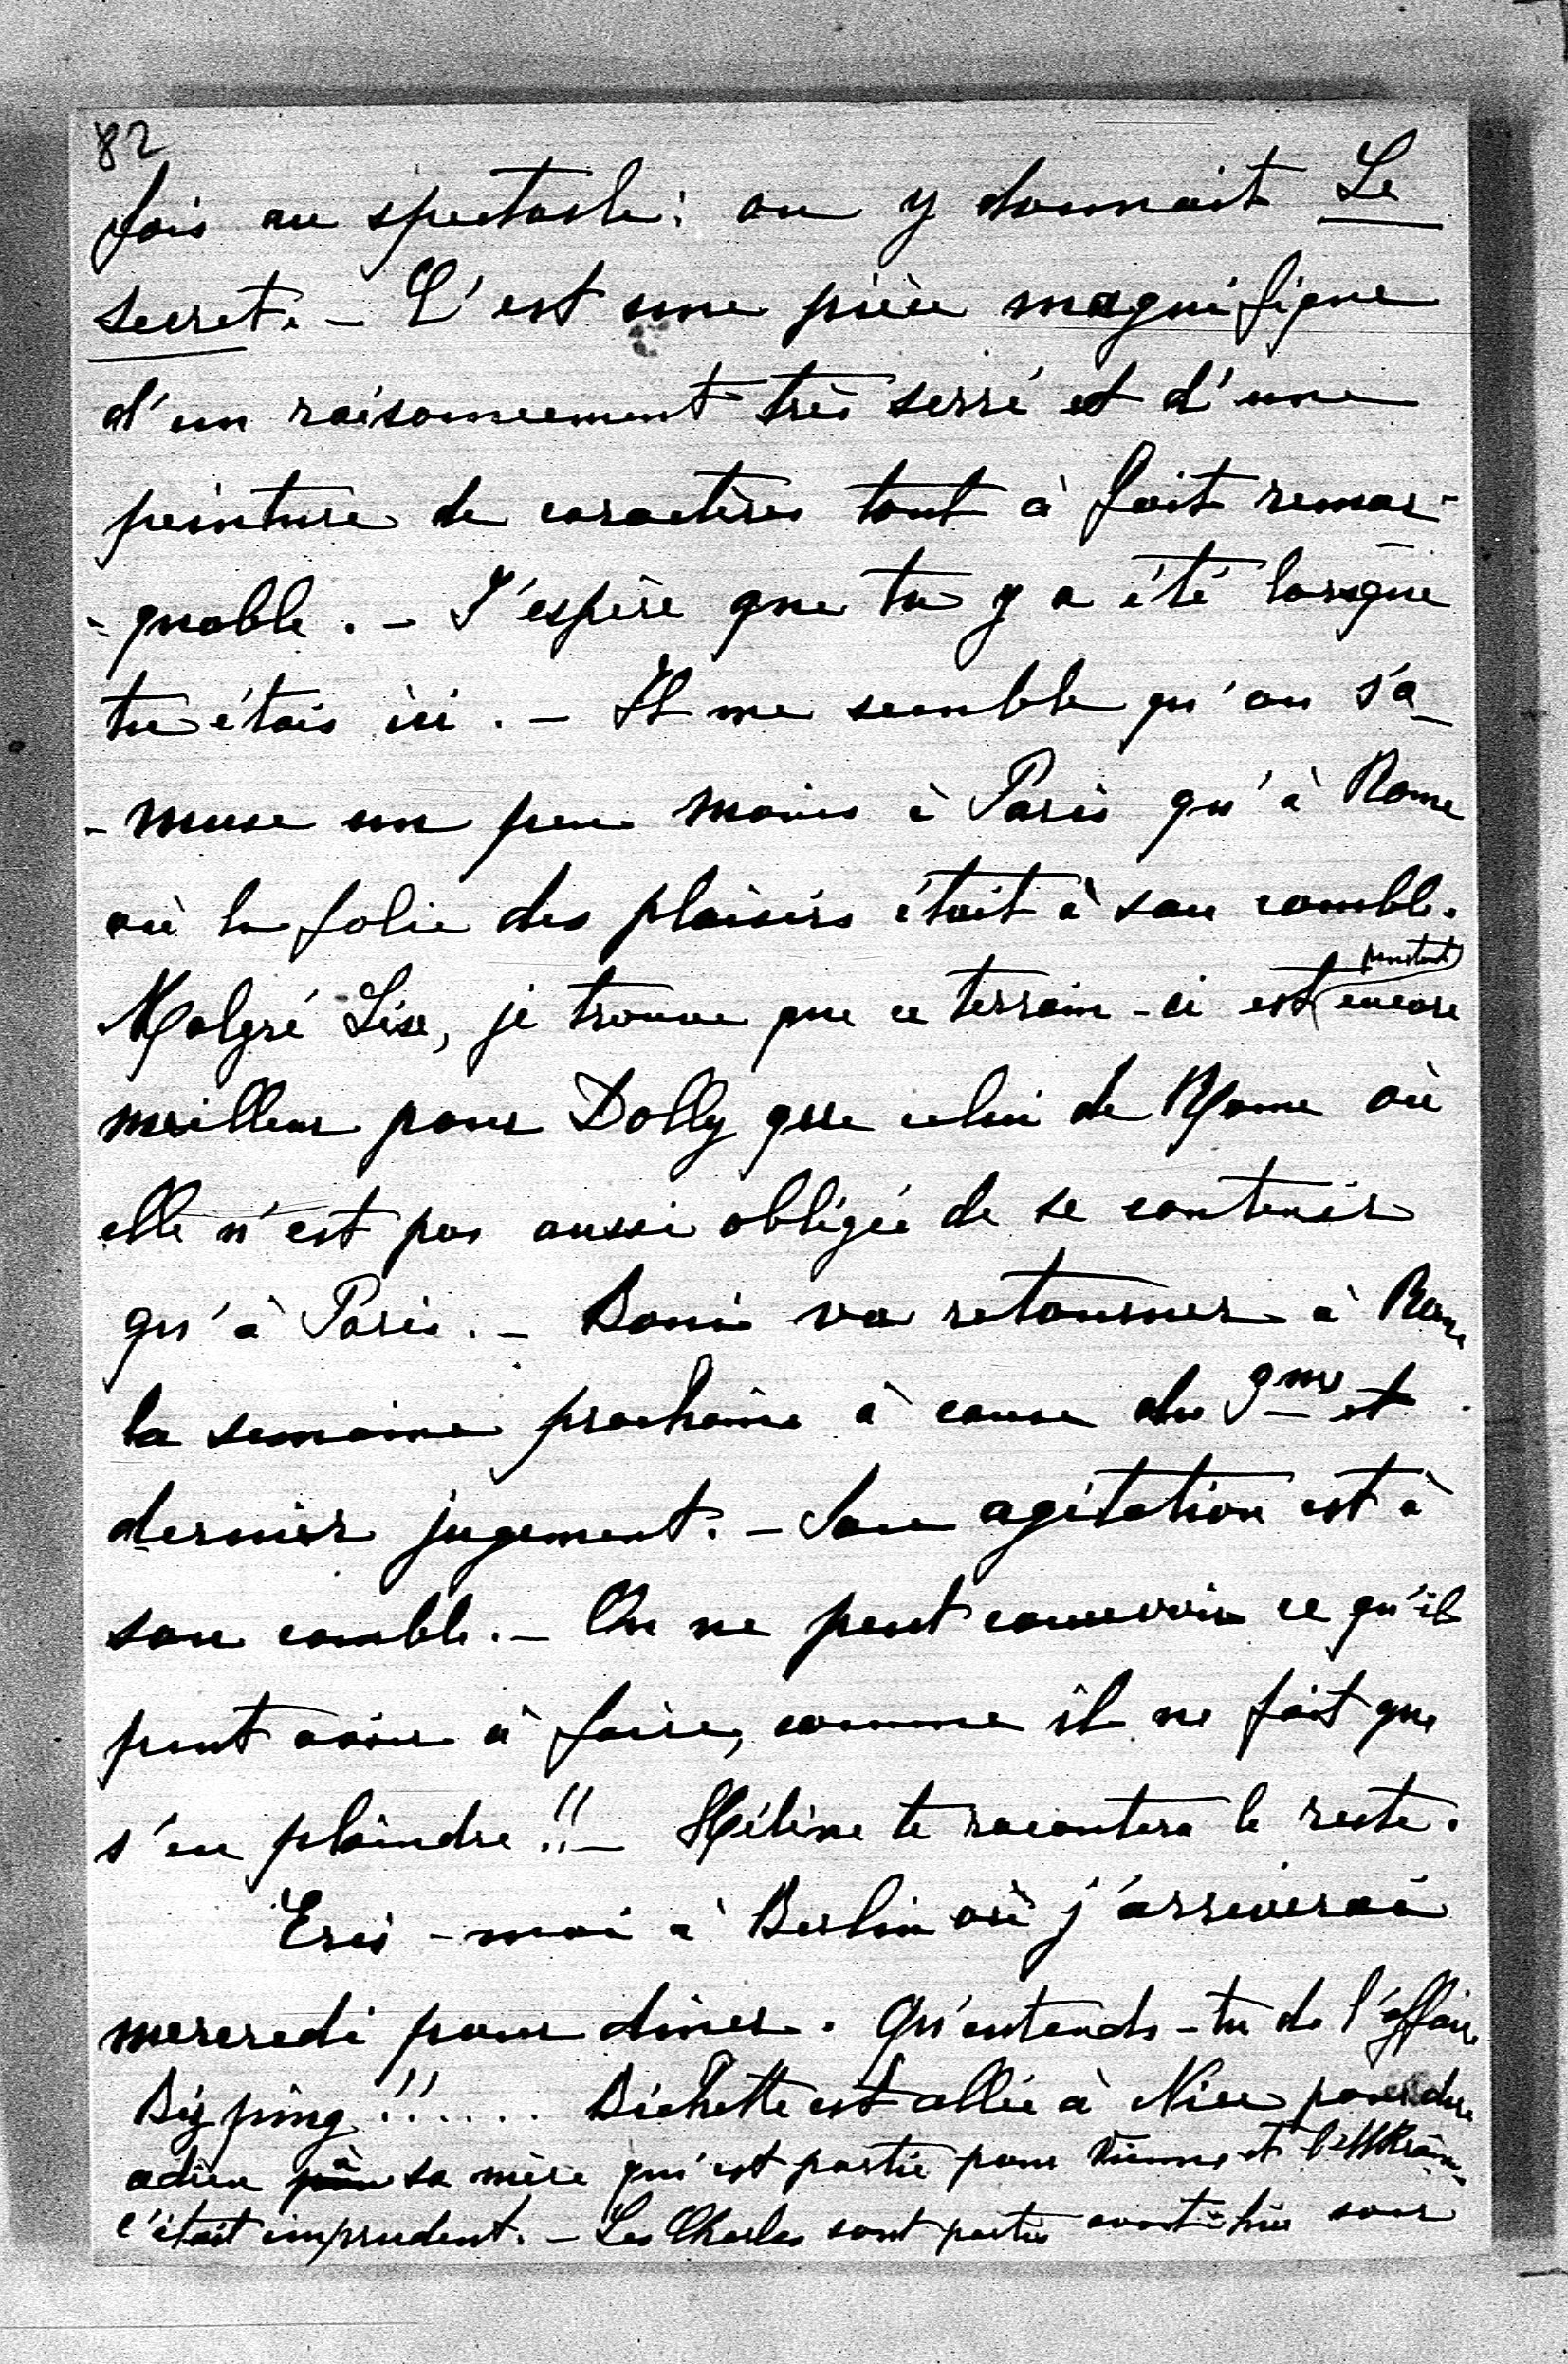 82
fois au spectacle : on y donnait Le
Secret. – C'est une pièce magnifique
d'un raisonnement très serré et d'une
peinture de caractères tout à fait remar-
-quable. – J'espère que tu y a été lorsque
tu étais ici. – Il me semble qu'on s'a-
-muse un peu moins à Paris qu'à Rome
où la folie des plaisirs était à son comble.
Malgré Lise, je trouve que ce terrain-ci est encore
meilleur pour Dolly que celui de Rome où
elle n'est pas aussi obligée de se contenir
qu'à Paris. – Boni va retourner à Rome
la semaine prochaine à cause du 9me et
dernier jugement. – Son agitation est à
son comble. – On ne peut concevoir ce qu'il
peut avoir à faire, comme il ne fait que
s'en plaindre !! – Hélène te racontera le reste.
Ecris-moi à Berlin où j'arriverai
mercredi pour dîner. Qu'entends-tu de l'affaire
Bizping !!..... Bichette est allée à Nice pour dire
adieu à sa mère qui est partie pour Vienne et l'Ukraine
c'était imprudent. – Les Charles sont partis avant hier soir